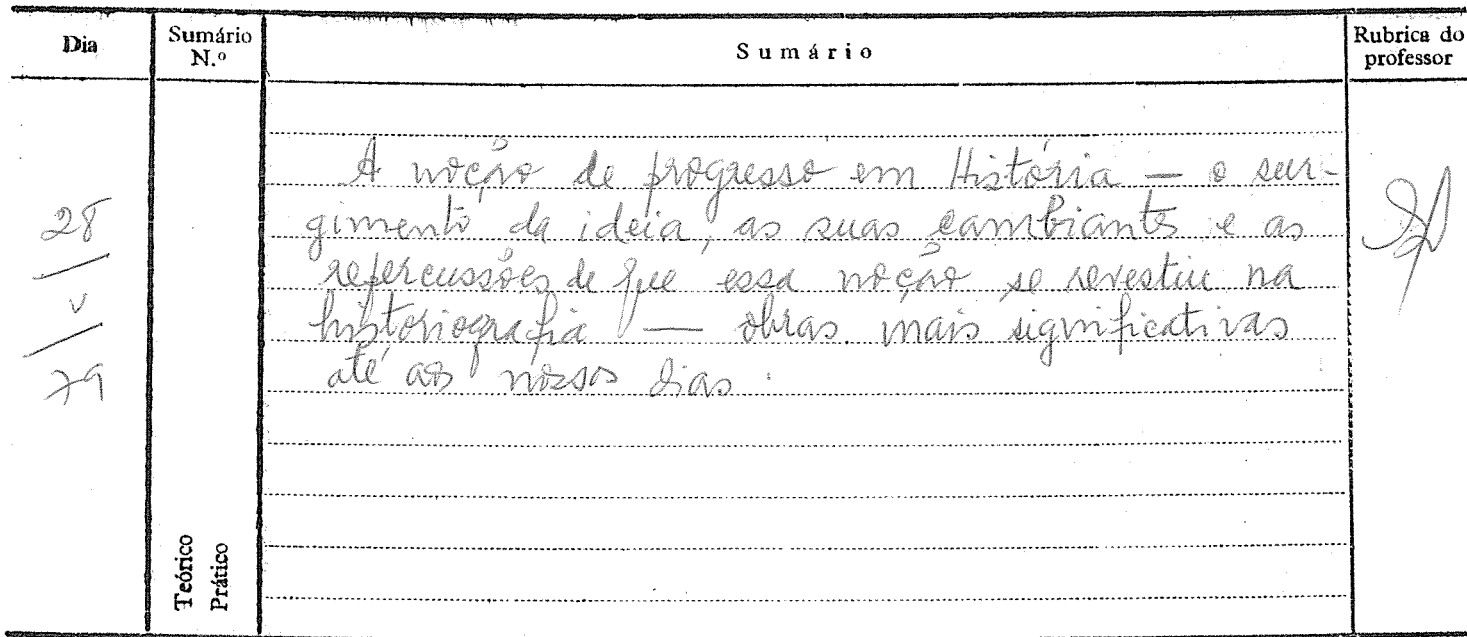 Dia
Sumário N.º
Sumário
Rubrica do professor
28
V
79
A noção de progresso em História — o sur-
gimento da ideia, as suas cambiantes e as
repercussões de que essa noção se revestiu na
historiografia — obras mais significativas
até aos nossos dias.
Teórico
Prático